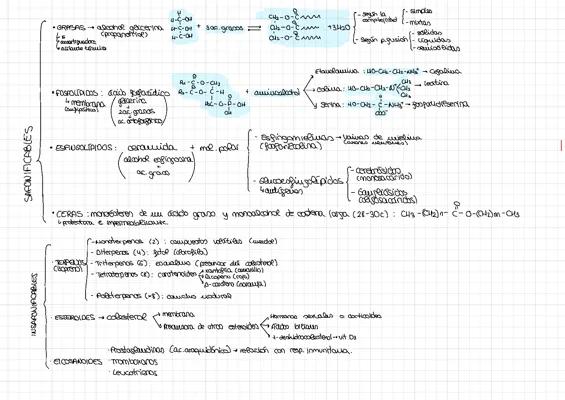 SAPONIFICABLES
• GRASAS → alcohol glicerina (propanotriol) + 3ac. grasos ⇌ + 3H₂O
- según la complejidad - simples - mixtas
- según p. fusión - sólidas - líquidas
• FOSFOLÍPIDOS: ácido fosfatídico + aminoalcohol
↳ membrana
glicerina + 2ac. grasos + ac. ortofosfórico
Etanolamina: HO-CH₂-CH₂-NH₃⁺ → cefalina
colina: HO-CH₂-CH₂-N⁺ → lecitina
serina: → fosfatidilserina
• ESFINGOLÍPIDOS: ceramida + mol. polar
(alcohol esfingosina + ac. graso)
- Esfingomielinas → vainas de mielina
(fosforilcolina)
- Glucoesfingolípidos - cerebrósidos (monosacárido)
- Gangliósidos (oligosacárido)
• CERAS: monoésteres de un ácido graso y monoalcohol de cadena larga (28-30C): CH₃-(CH₂)n-C-O-(CH₂)m-CH₃
↳ protectora e impermeabilizante
INSAPONIFICABLES
• TERPENOS (isopreno)
- Monoterpenos (2): compuestos volátiles (mentol)
- Diterpenos (4): fitol (clorofila)
- Triterpenos (6): escualeno (precursor del colesterol)
- Tetraterpenos (8): carotenoides → xantofila (amarilla)
→ licopeno (rojo)
→ β-caroteno (naranja)
- Politerpenos (+8): caucho natural
• ESTEROIDES → colesterol
membrana
Precursora de otros esteroides
Hormonas sexuales o corticoides
Ácidos biliares
7-deshidrocolesterol → vit D₃
• EICOSANOIDES
Prostaglandinas (ac. araquidónico) → relación con resp. inmunitaria.
Tromboxanos
Leucotrienos